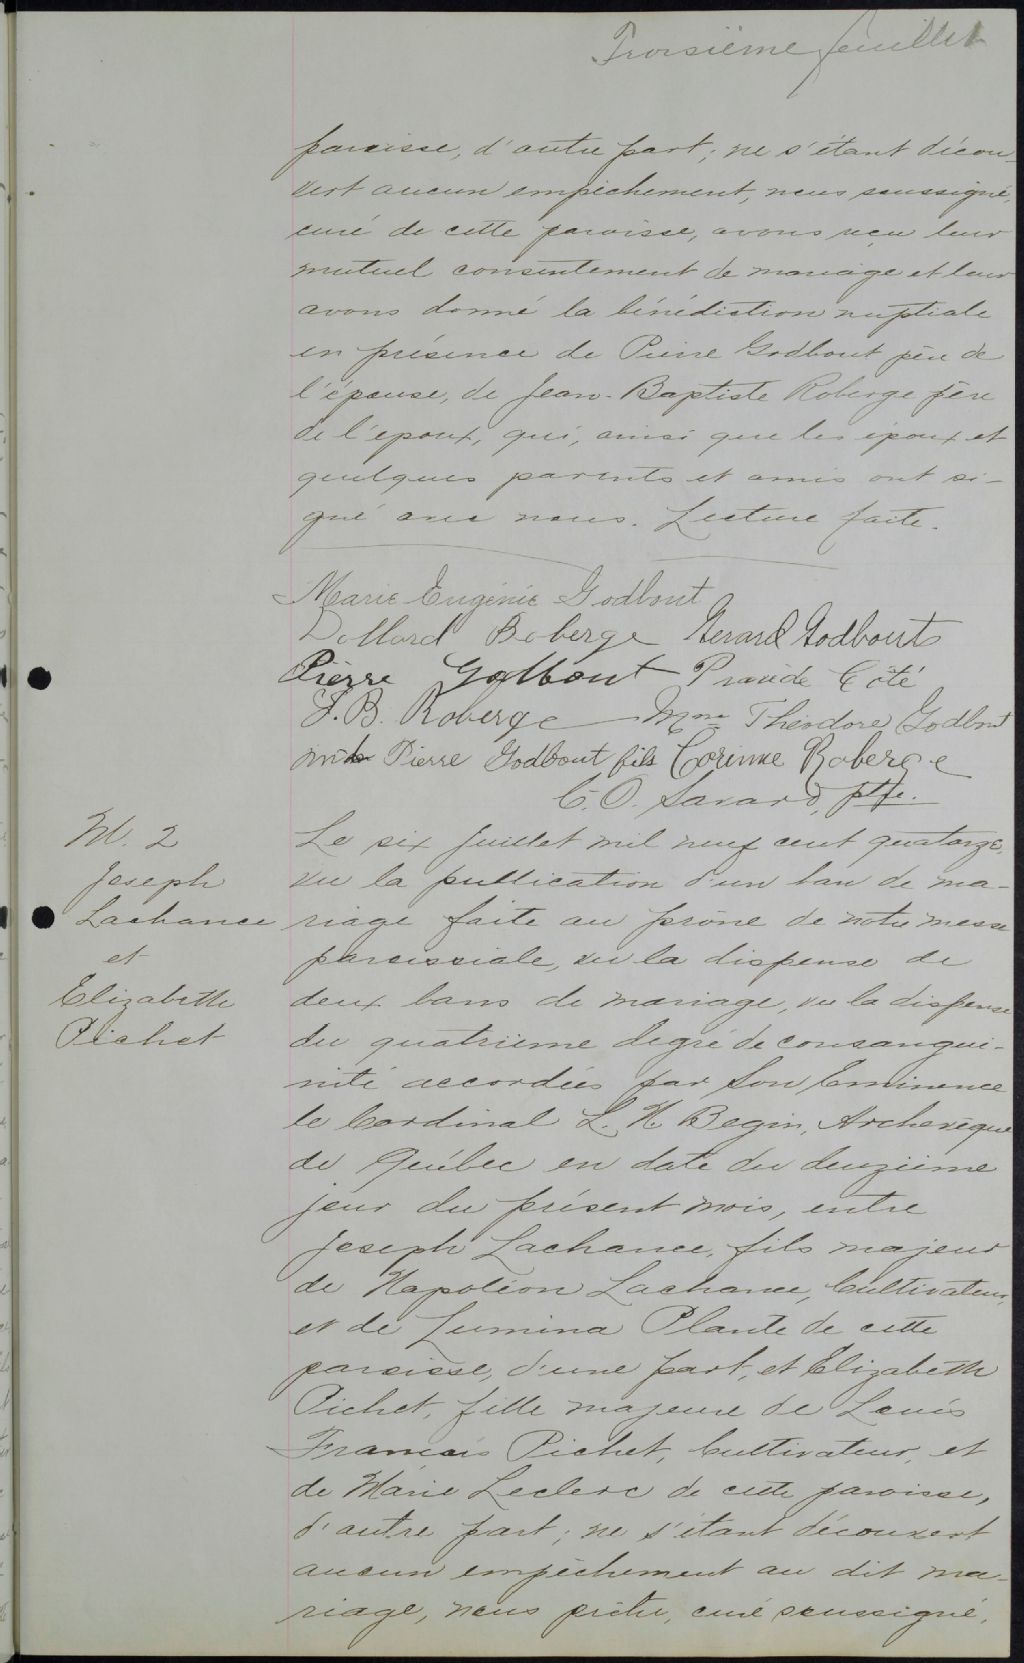 Troisième feuillet
paroisse, d'autre part; ne s'étant décou-
vert aucun empêchement, nous soussigné,
curé de cette paroisse, avons reçu leur
mutuel consentement de mariage et leur
avons donné la bénédiction nuptiale
en présence de Pierre Godbout père de
l'épouse, de Jean-Baptiste Roberge père
de l'epoux, qui, ainsi que les époux et
quelques parents et amis ont si-
gné avec nous. Lecture faite.
Marie Eugénie Godbout
Dollard Roberge Gerard Godbout
Pierre Godbout Praxède Côté
J. B. Roberge Mme Théodore Godbout
Pierre Godbout fils Corinne Roberge
C. O. Savard, ptre.
M. 2
Joseph
Lachance
et
Elizabeth
Pichet
Le six juillet mil neuf cent quatorze,
vu la publication d'un ban de ma-
riage faite au prône de notre messe
paroissiale, vu la dispense de
deux bans de mariage, vu la dispense
du quatrième degré de consangui-
nité accordées par Son Eminence
le Cardinal L. N. Begin, Archevêque
de Québec en date du deuxième
jour du présent mois, entre
Joseph Lachance, fils majeur
de Napoléon Lachance, Cultivateur,
et de Lumina Plante de cette
paroisse, d'une part, et Elizabeth
Pichet, fille majeure de Louis
François Pichet, Cultivateur, et
de Marie Leclerc de cette paroisse,
d'autre part; ne s'étant découvert
aucun empêchement au dit ma-
riage, nous prêtre, curé soussigné,